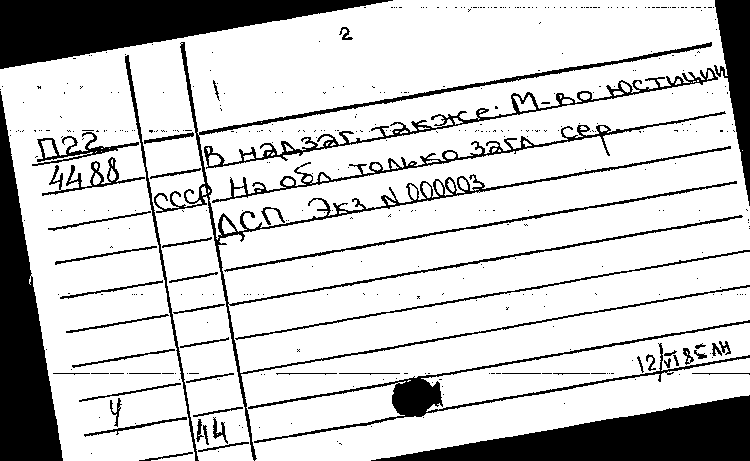 2
П22
4488
В надзаг. также: М-во юстиции
СССР На обл. только загл. сер.
ДСП Экз N 000003
12/VI 85 ЛН
У
44